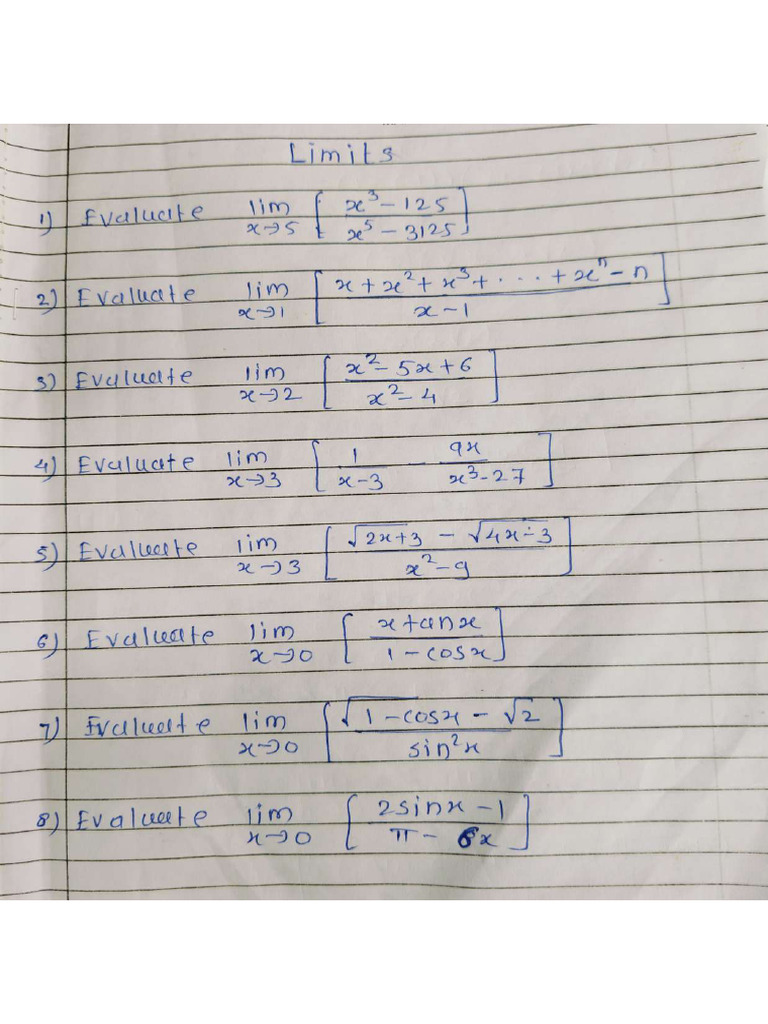 Limits
1) Evaluate lim x→5 [ (x³ - 125) / (x⁵ - 3125) ]
2) Evaluate lim x→1 [ (x + x² + x³ + ... + xⁿ - n) / (x - 1) ]
3) Evaluate lim x→2 [ (x² - 5x + 6) / (x² - 4) ]
4) Evaluate lim x→3 [ 1 / (x - 3) - 9x / (x³ - 27) ]
5) Evaluate lim x→3 [ (√(2x+3) - √(4x-3)) / (x² - 9) ]
6) Evaluate lim x→0 [ x tan x / (1 - cos x) ]
7) Evaluate lim x→0 [ (√(1 - cos x) - √2) / sin² x ]
8) Evaluate lim x→0 [ (2 sin x - 1) / (π - 6x) ]